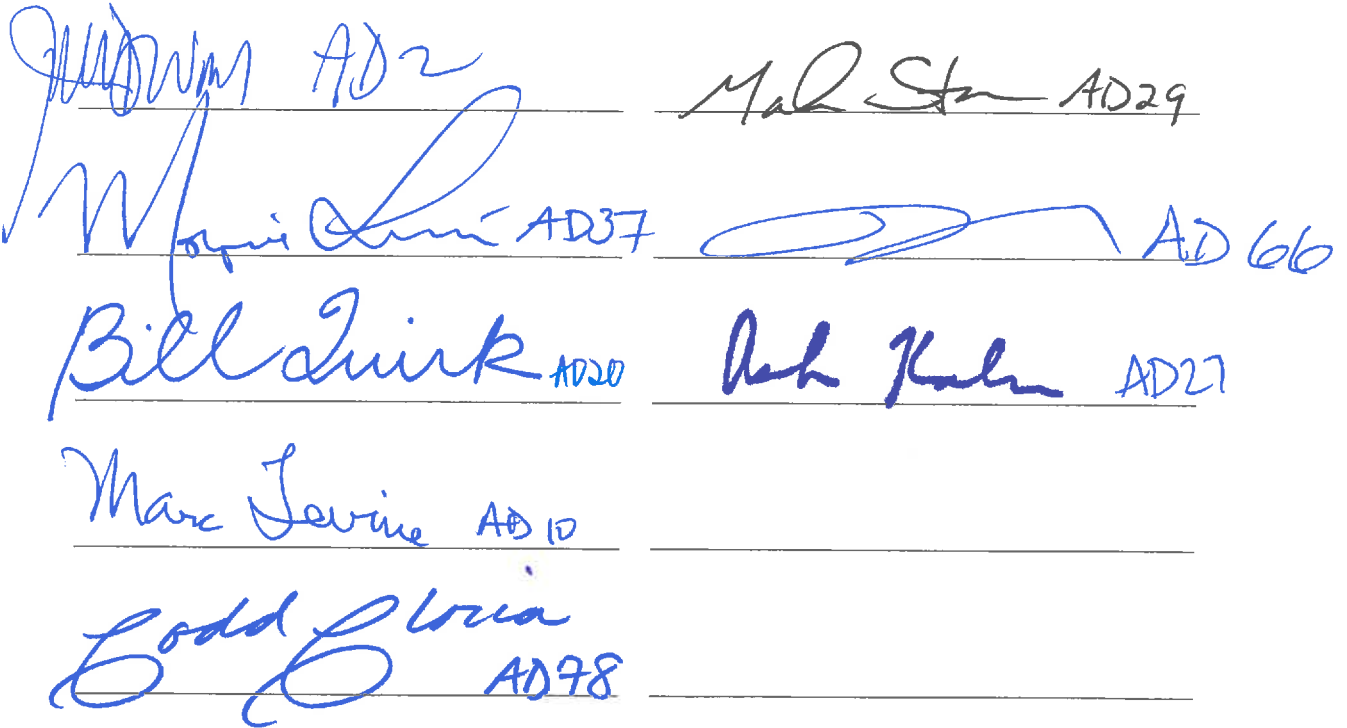 AD2
AD37
Bill Quirk AD20
Marc Levine AD10
Todd Gloria
AD78
Mark Stone AD29
AD 66
Ash Kalra AD27